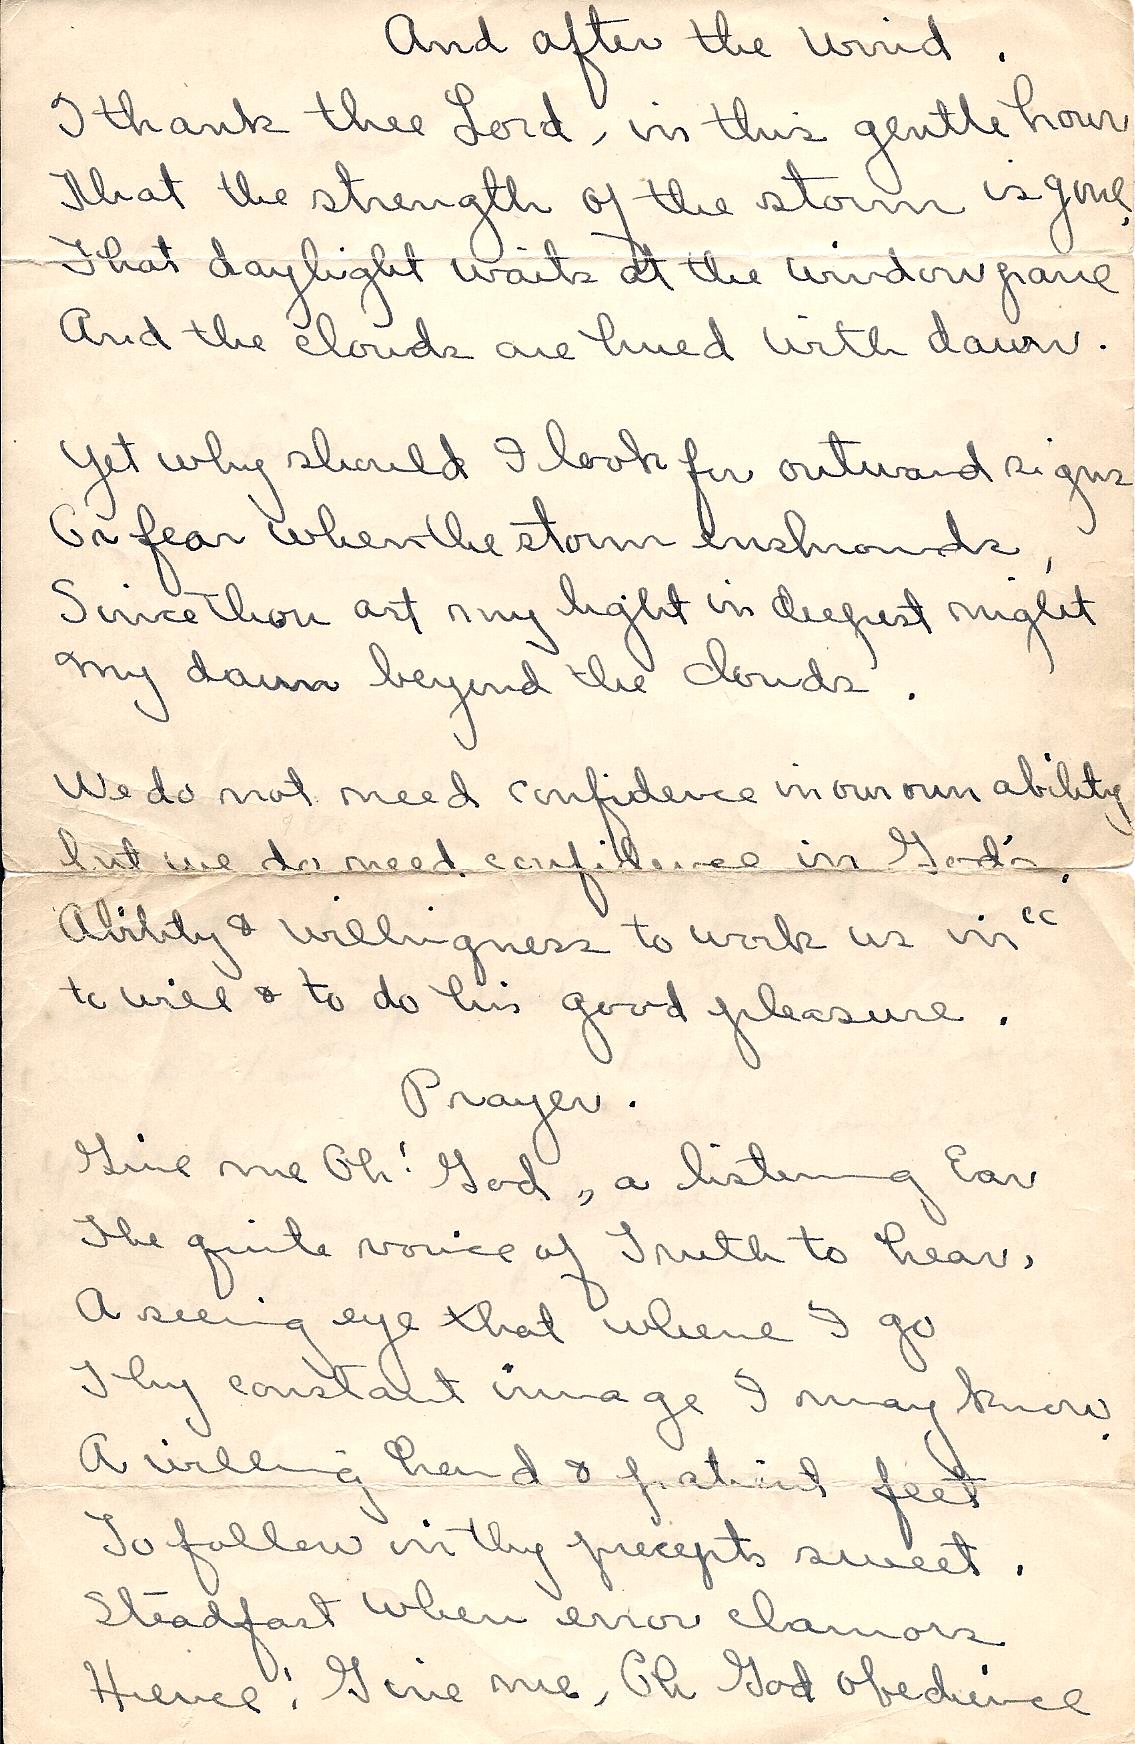 And after the wind .
I thank thee Lord, in this gentle hour
That the strength of the storm is gone,
That daylight waits at the window pane
And the clouds are hued with dawn.
Yet why should I look for outward signs
Or fear when the storm enshrouds,
Since Thou art my light in deepest night
My dawn beyond the clouds .
We do not need confidence in our own ability
but we do need confidence in God's,
Ability & willingness to work us in "
to will & to do his good pleasure .
Prayer .
Give me Oh! God ,, a listening Ear
The quite voice of Truth to hear,
A seeing eye that where I go
Thy constant image I may know.
A willing hand & patient feet
To follow in thy precepts sweet .
Steadfast when error clamors
Hience! Give me, Oh God obedience